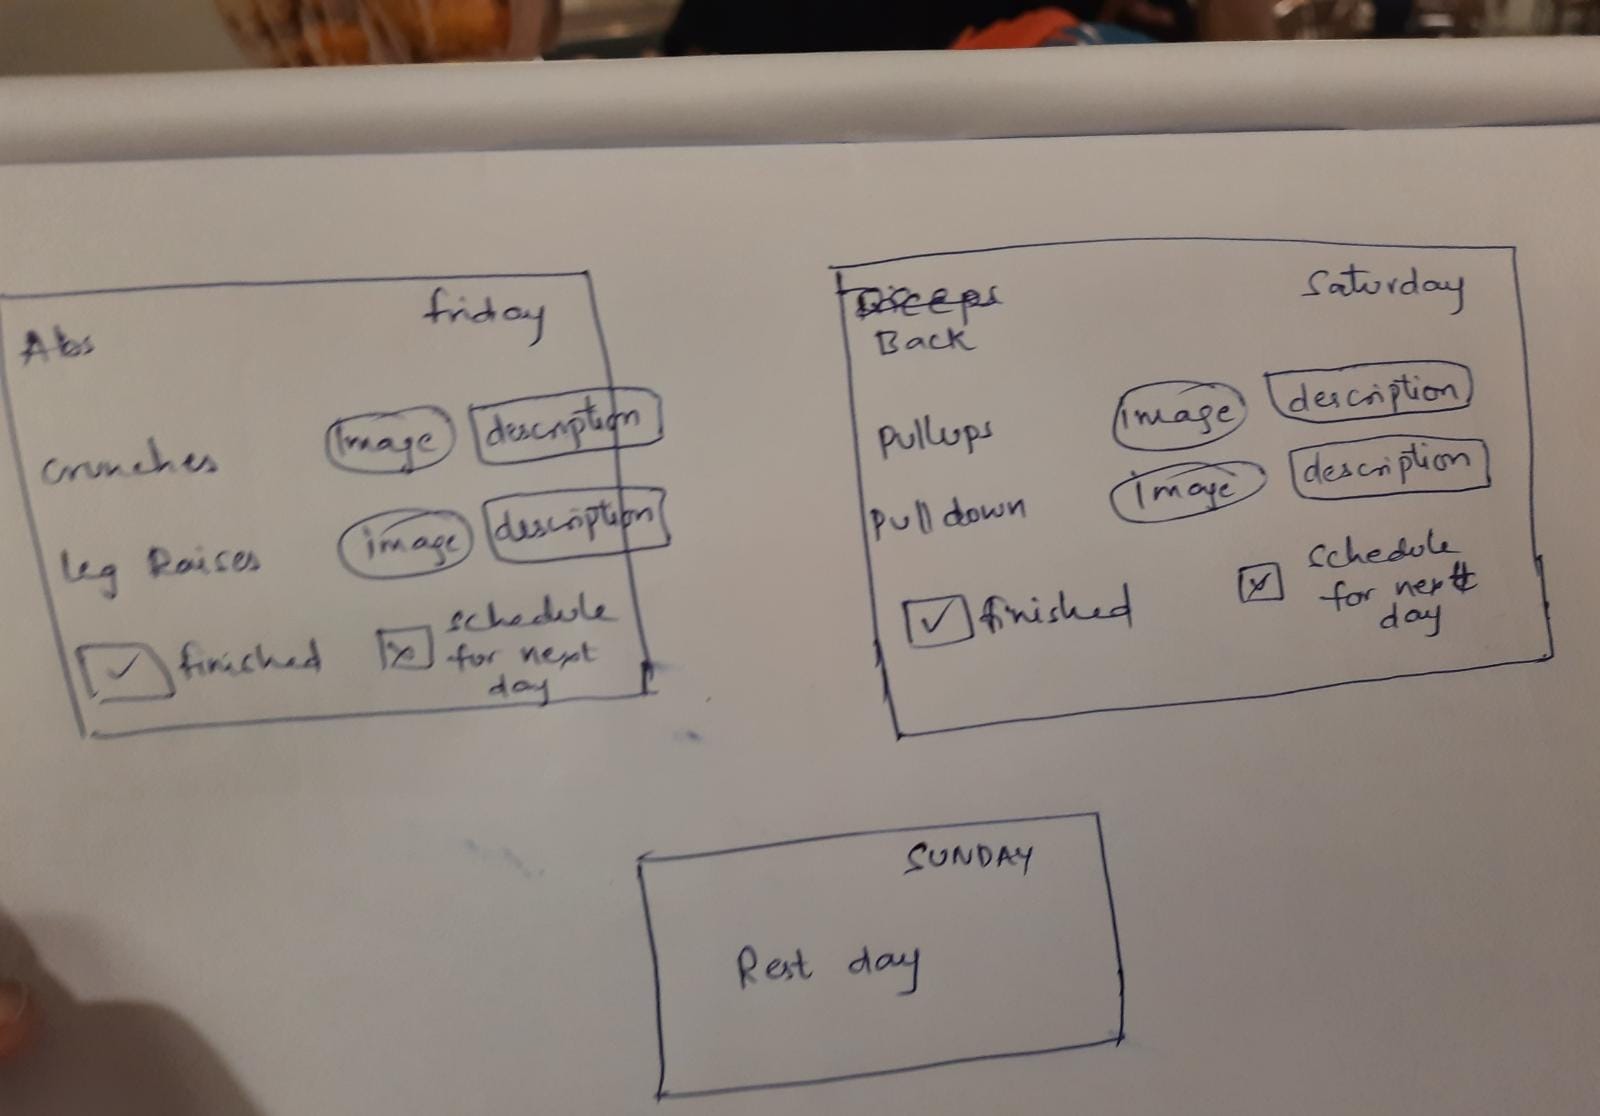 friday
Abs
crunches image description
leg Raises image description
finished schedule
for next
day
Saturday
Back
Pullups image description
Pull down image description
finished schedule
for next
day
SUNDAY
Rest day